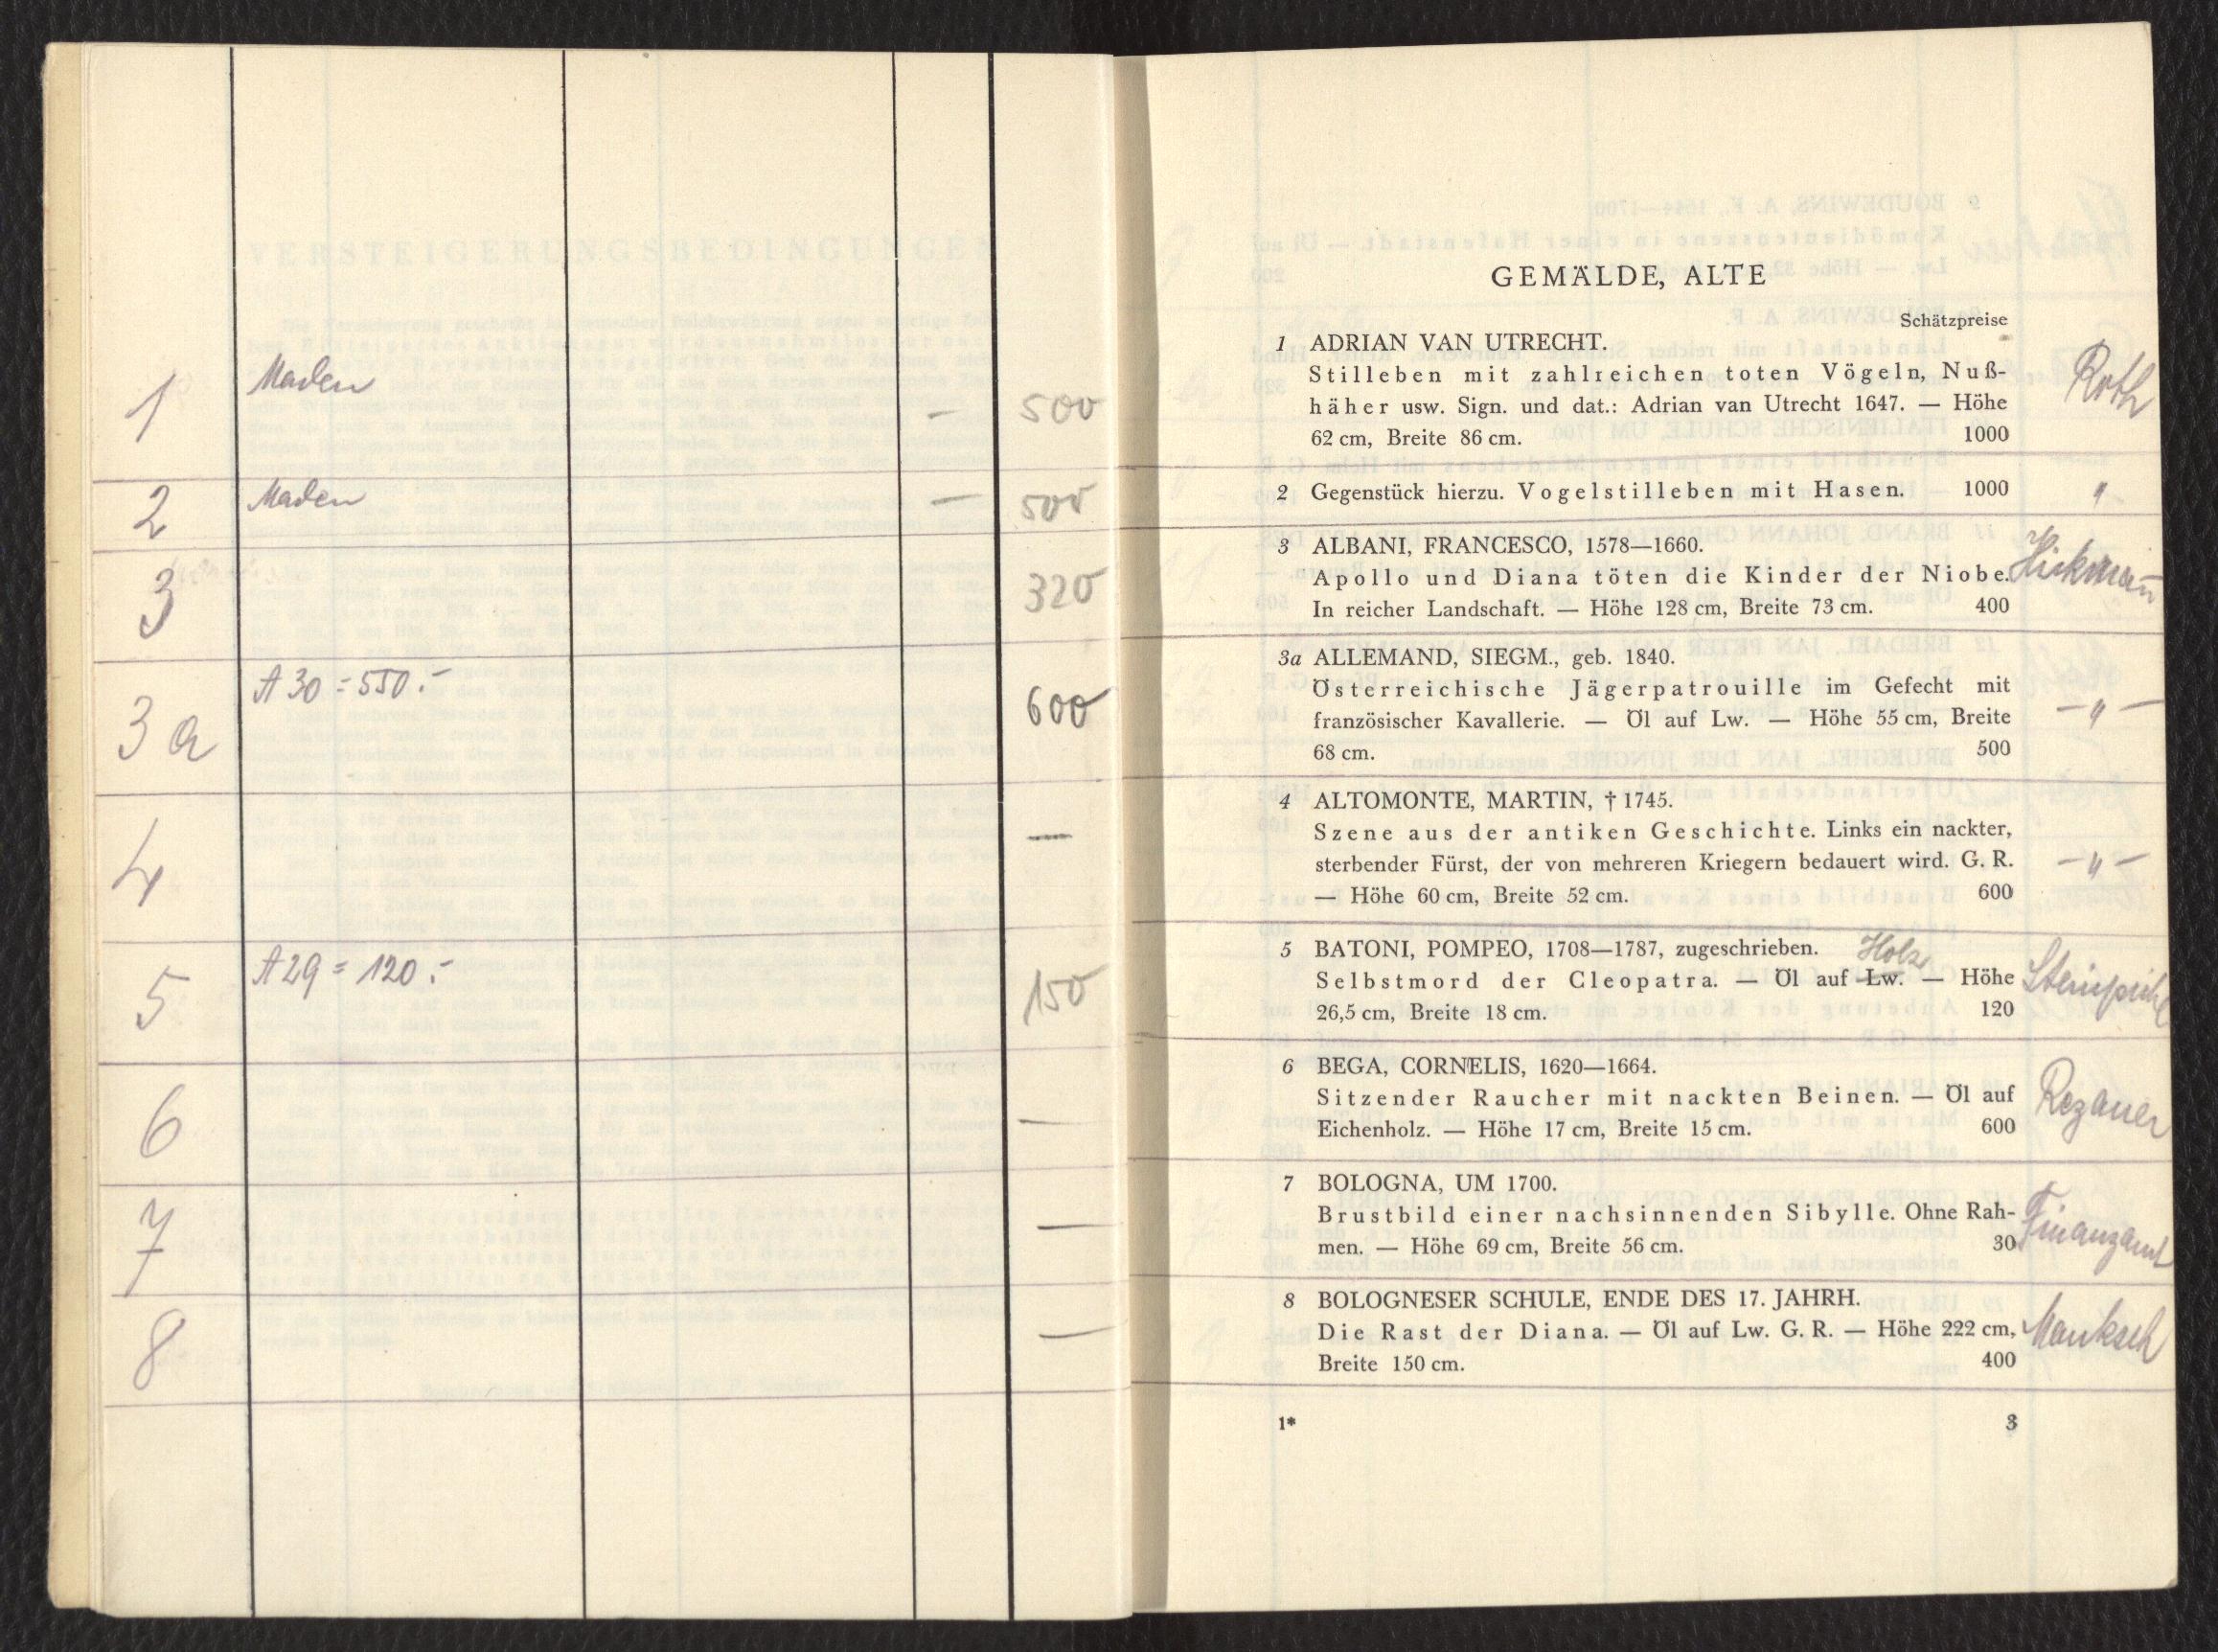 1 Maden — 500
2 Maden — 500
3 320
3a A 30 = 550.- 600
4 —
5 A 29 = 120.- 150
6 —
7 —
8 —
VERSTEIGERUNGSBEDINGUNGEN
GEMÄLDE, ALTE
Schätzpreise
1 ADRIAN VAN UTRECHT.
Stilleben mit zahlreichen toten Vögeln, Nuß-
häher usw. Sign. und dat.: Adrian van Utrecht 1647. — Höhe
62 cm, Breite 86 cm. 1000
Roth
2 Gegenstück hierzu. Vogelstilleben mit Hasen. 1000 "
3 ALBANI, FRANCESCO, 1578—1660.
Apollo und Diana töten die Kinder der Niobe. Hickmann
In reicher Landschaft. — Höhe 128 cm, Breite 73 cm. 400
3a ALLEMAND, SIEGM., geb. 1840.
Österreichische Jägerpatrouille im Gefecht mit
französischer Kavallerie. — Öl auf Lw. — Höhe 55 cm, Breite — " —
68 cm. 500
4 ALTOMONTE, MARTIN, † 1745.
Szene aus der antiken Geschichte. Links ein nackter,
sterbender Fürst, der von mehreren Kriegern bedauert wird. G. R. — " —
— Höhe 60 cm, Breite 52 cm. 600
5 BATONI, POMPEO, 1708—1787, zugeschrieben. Holz
Selbstmord der Cleopatra. — Öl auf Lw. — Höhe
26,5 cm, Breite 18 cm. 120
6 BEGA, CORNELIS, 1620—1664.
Sitzender Raucher mit nackten Beinen. — Öl auf Rezauer
Eichenholz. — Höhe 17 cm, Breite 15 cm. 600
7 BOLOGNA, UM 1700.
Brustbild einer nachsinnenden Sibylle. Ohne Rah- Finanzamt
men. — Höhe 69 cm, Breite 56 cm. 30
8 BOLOGNESER SCHULE, ENDE DES 17. JAHRH.
Die Rast der Diana. — Öl auf Lw. G. R. — Höhe 222 cm, Manksch
Breite 150 cm. 400
1* 3